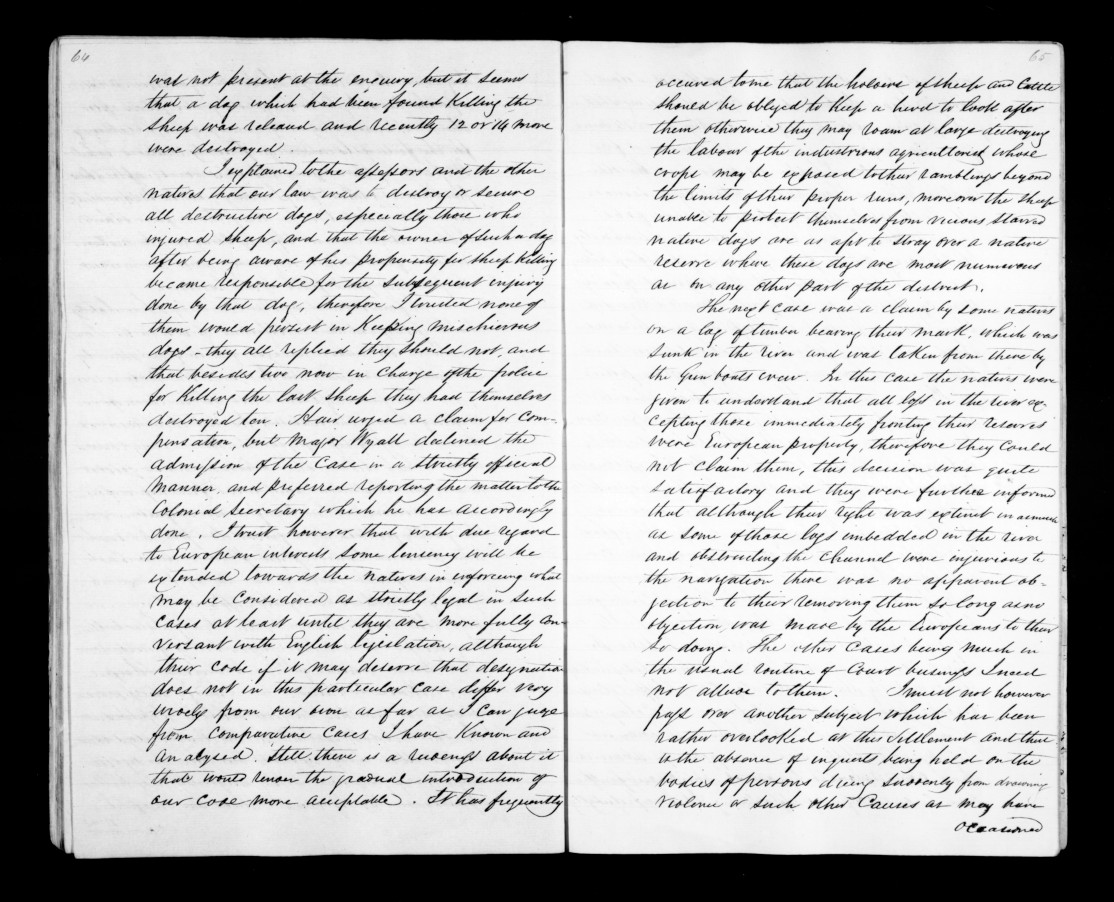 64
was not present at the enquiry, but it seems
that a dog which had been found killing the
sheep was released and recently 12 or 14 more
were destroyed.
I explained to the assessors and the other
natives that our law was to destroy or secure
all destructive dogs, especially those who
injured sheep, and that the owner of such a dog
after being aware of his propensity for sheep killing
became responsible for the subsequent injury
done by that dog, therefore I trusted none of
them would persist in keeping mischievous
dogs - they all replied they should not, and
that besides two now in charge of the police
for killing the last sheep they had themselves
destroyed ten. Hair urged a claim for com-
pensation, but Major Wyatt declined the
admission of the case in a strictly official
manner, and preferred reporting the matter to the
Colonial Secretary which he has accordingly
done. I trust however that with due regard
to European interests some leniency will be
extended towards the natives in enforcing what
may be considered as strictly legal in such
cases at least until they are more fully con-
versant with English legislation, although
their code if it may deserve that designation
does not in this particular case differ very
widely from our own as far as I can judge
from comparative cases I have known and
analysed. Still there is a rudeness about it
that would render the gradual introduction of
our code more acceptable. It has frequently
65
occured to me that the holders of sheep and Cattle
should be obliged to keep a herd to look after
them otherwise they may roam at large destroying
the labour of the industrious agriculturist whose
crops may be exposed to their ramblings beyond
the limits of their proper runs, moreover the sheep
unable to protect themselves from vicious starved
native dogs are as apt to stray over a native
reserve where these dogs are most numerous
as on any other part of the district.
The next case was a claim by some natives
on a log of timber bearing their mark, which was
sunk in the river and was taken from there by
the Gun boats crew. In this case the natives were
given to understand that all left in the river ex-
cepting those immediately fronting their reserves
were European property, therefore they could
not claim them, this decision was quite
satisfactory and they were further informed
that although their right was extinct in asmuch
as some of those logs imbedded in the river
and obstructing the channel were injurious to
the navigation there was no apparent ob-
jection to their removing them so long as no
objection was made by the Europeans to their
so doing. The other cases being much in
the usual routine of Court business I need
not allude to them. I must not however
pass over another subject which has been
rather overlooked at this settlement and that
is the absence of inquests being held on the
bodies of persons dieing suddenly from drowning
violence or such other causes as may have
occasioned